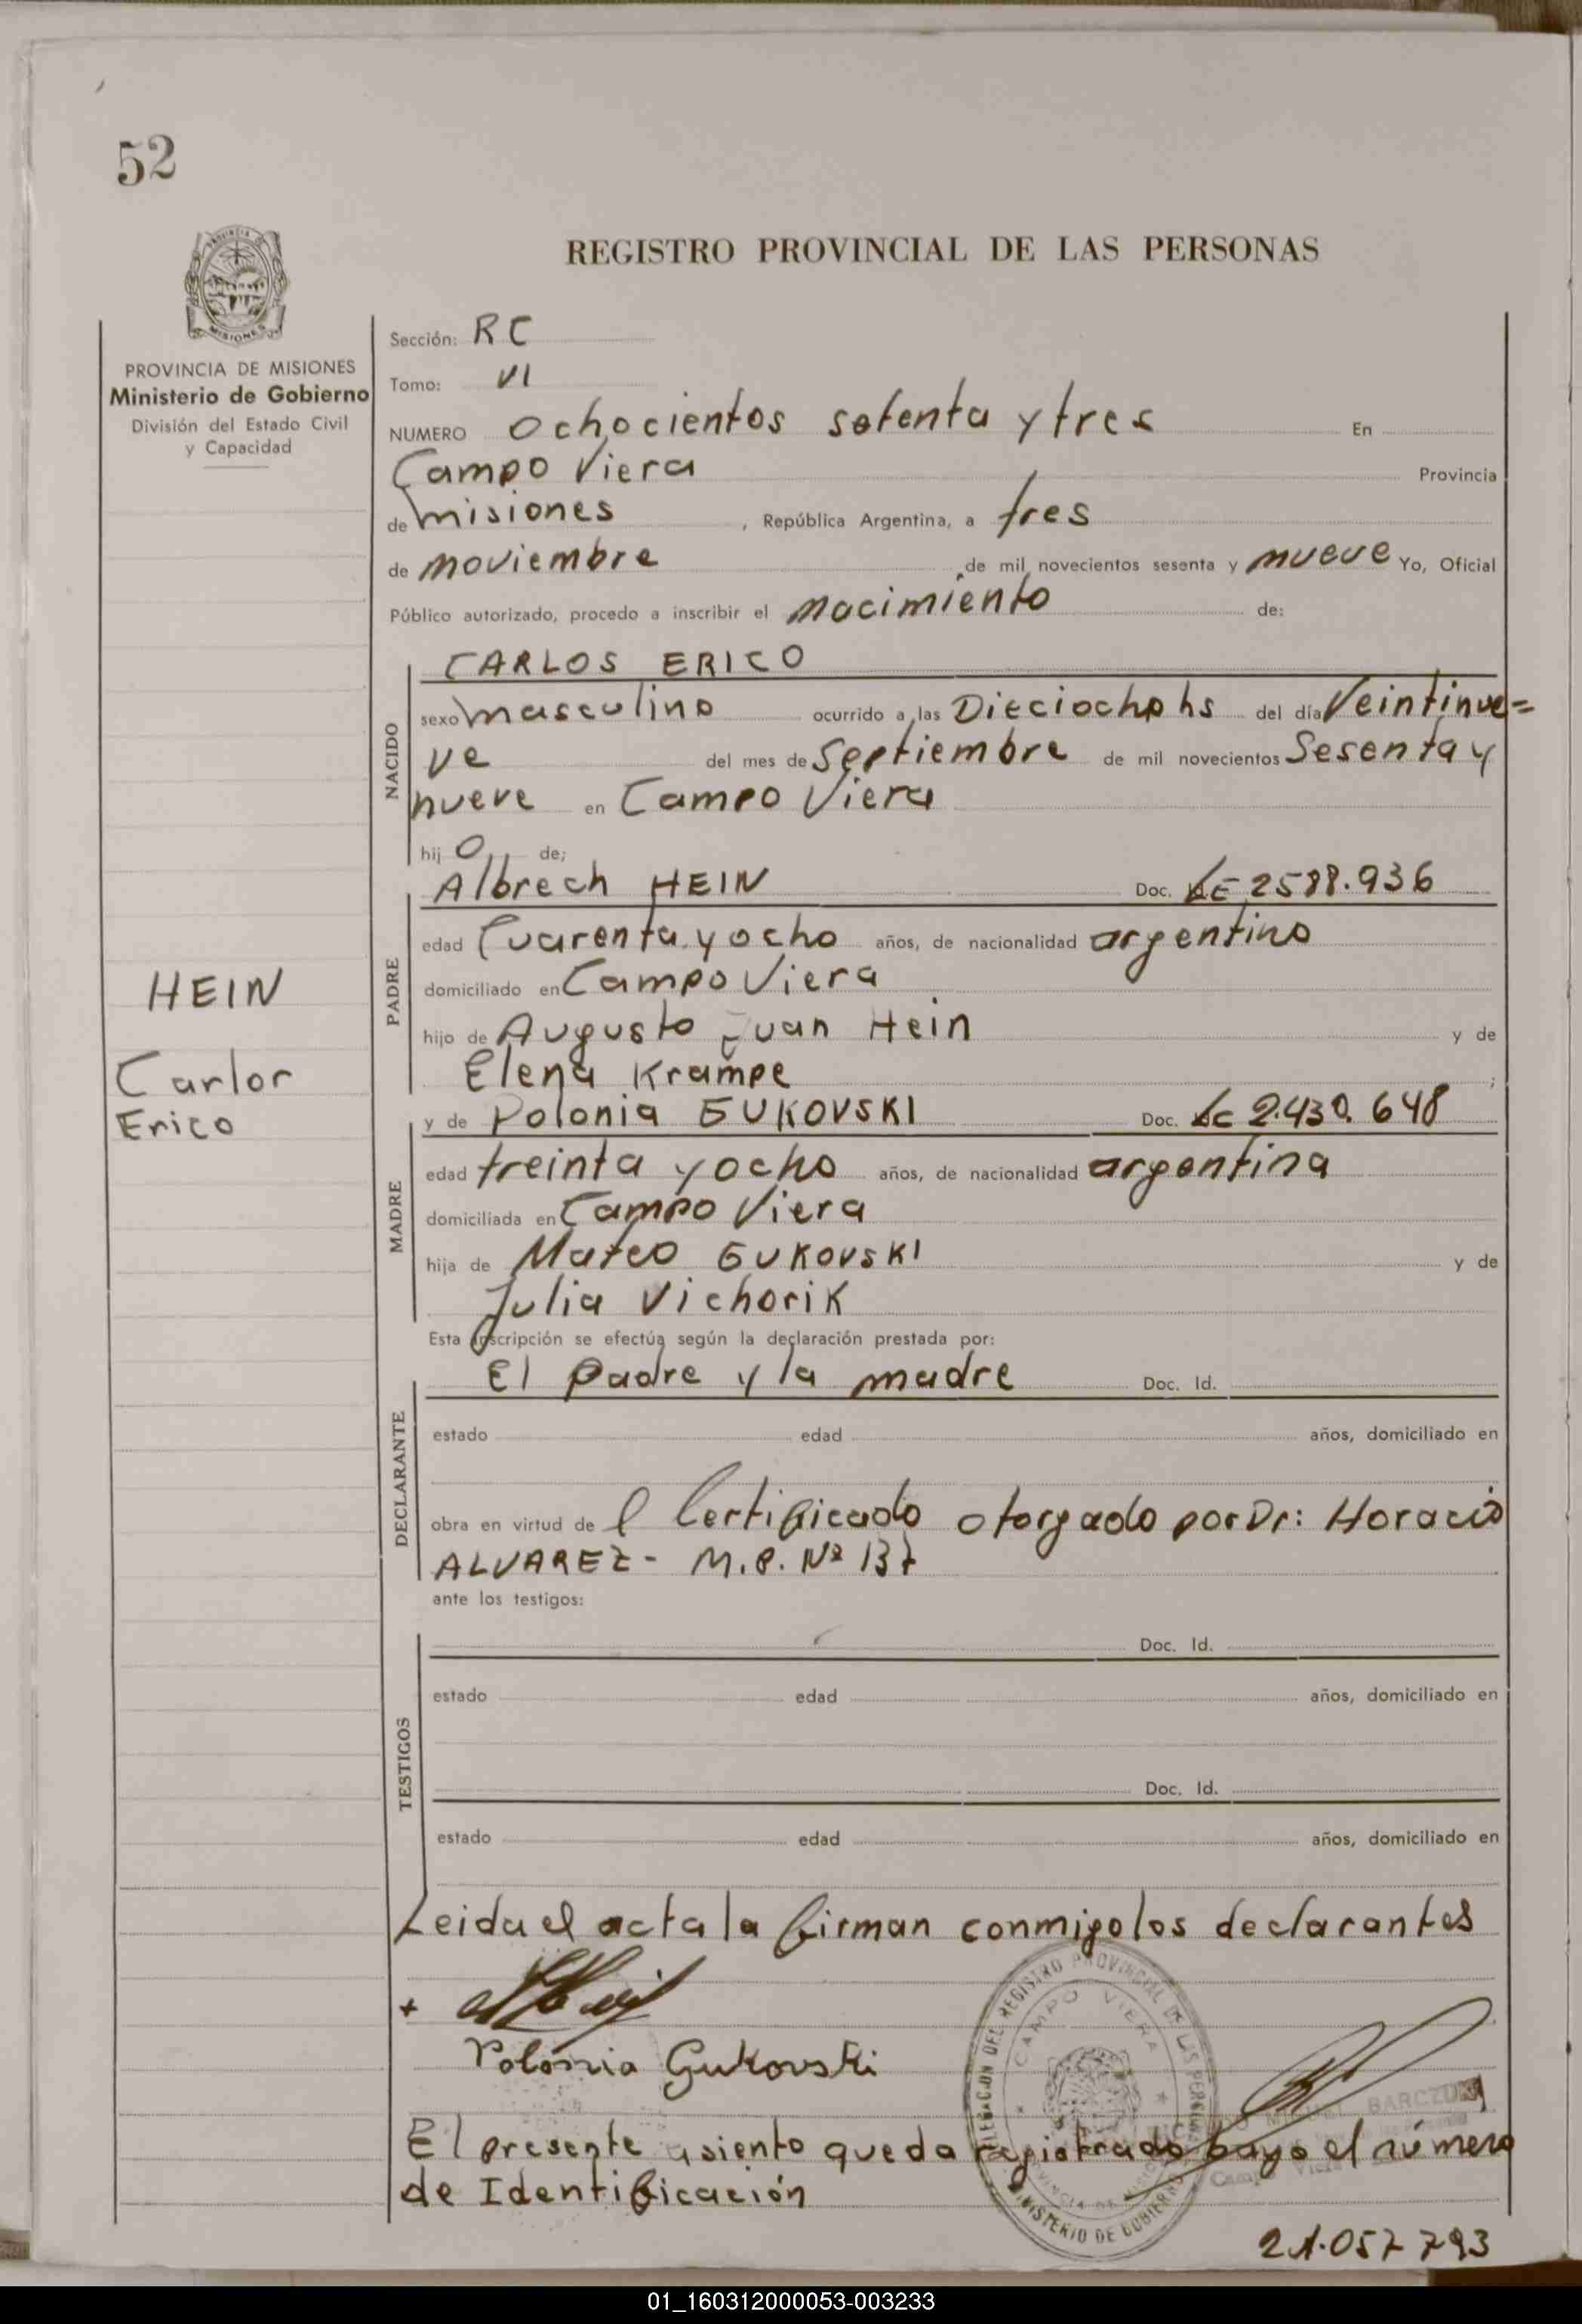 52
REGISTRO PROVINCIAL DE LAS PERSONAS
MISIONES
PROVINCIA DE MISIONES
Ministerio de Gobierno
División del Estado Civil
y Capacidad
HEIN
Carlor
Erico
Sección: RC
Tomo: VI
NUMERO Ochocientos setenta y tres En
Campo Viera Provincia
de misiones, República Argentina, a tres
de noviembre de mil novecientos sesenta y nueve Yo, Oficial
Público autorizado, procedo a inscribir el nacimiento de:
CARLOS ERICO
NACIDO
sexo masculino ocurrido a las Dieciocho hs del día Veintinue=
ve del mes de Septiembre de mil novecientos Sesenta y
nueve en Campo Viera
hijo de;
Albrech HEIN Doc. LE 2588.936
PADRE
edad Cuarenta y ocho años, de nacionalidad argentino
domiciliado en Campo Viera
hijo de Augusto Juan Hein y de
Elena Krampe;
y de Polonia GUKOVSKI Doc. LC 2.430.648
MADRE
edad treinta y ocho años, de nacionalidad argentina
domiciliada en Campo Viera
hija de Mateo GUKOVSKI y de
Julia Vichorik
Esta inscripción se efectúa según la declaración prestada por:
El padre y la madre Doc. Id.
DECLARANTE
estado edad años, domiciliado en
obra en virtud de l Certificado otorgado por Dr: Horacio
ALVAREZ - M.P. Nº 137
ante los testigos:
Doc. Id.
TESTIGOS
estado edad años, domiciliado en
Doc. Id.
estado edad años, domiciliado en
Leida el acta la firman conmigo los declarantes
Polonia Gukovski
DELEGACION DEL REGISTRO PROVINCIAL DE LAS PERSONAS
CAMPO VIERA
PROVINCIA DE MISIONES
MINISTERIO DE GOBIERNO
MIGUEL BARCZUK
Campo Viera
El presente asiento queda registrado bajo el número
de Identificación
21.057793
01_160312000053-003233